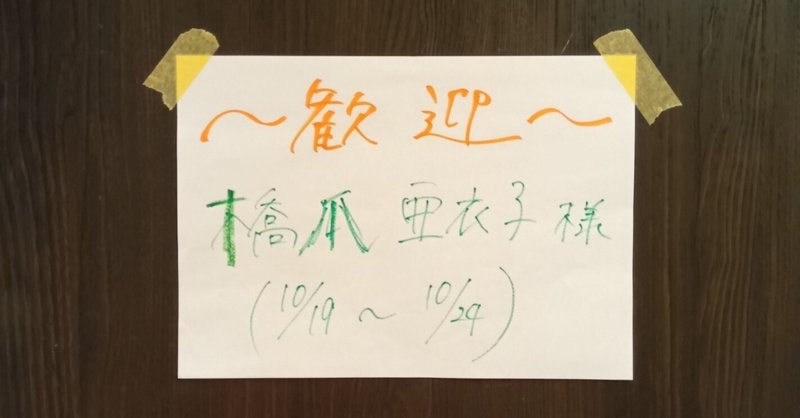 ～歓迎～
橋爪 亜衣子 様
(10/19 ～ 10/24)